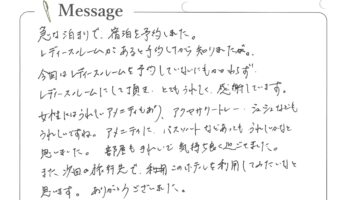 Message
急な泊まりで、宿泊を予約しました。
レディースルームがあると予約してから知りましたが、
今回はレディースルームを予約していないにもかかわらず
レディースルームにして頂き、とてもうれしく、感謝しています。
女性にはうれしいアメニティもあり、アクセサリートレー・
うれしいですね。アメニティに、バスソルトなどあってもうれしいかなと
思いました。部屋もきれいで気持ち良く過ごせました。
また次回の旅行先で、利用このホテルを利用してみたいなと
思います。ありがとうございました。